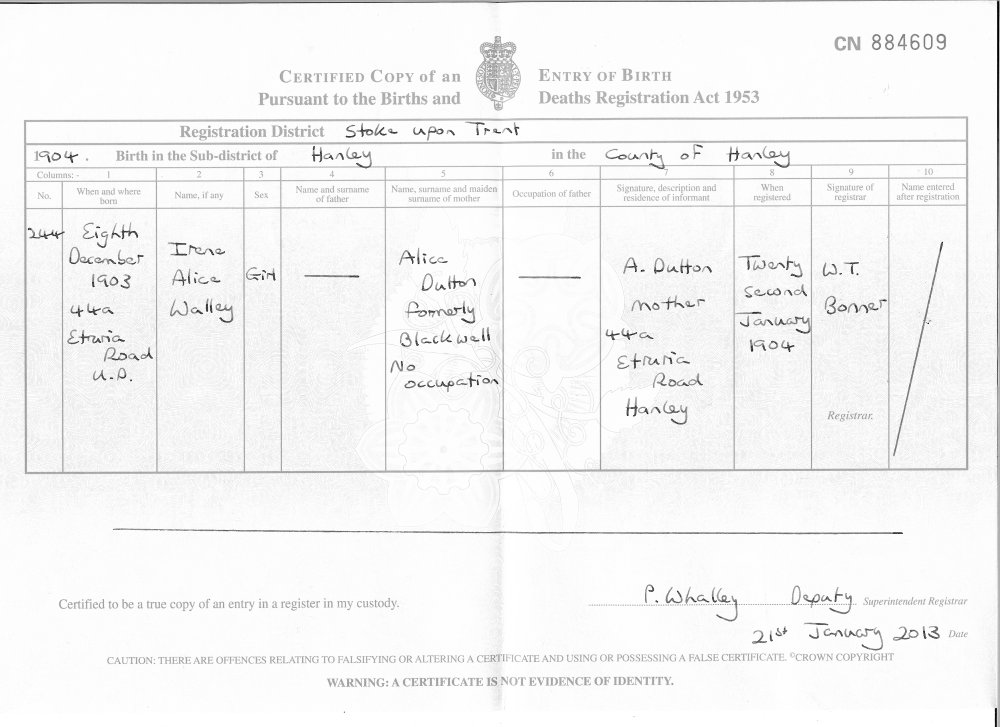 CN 884609
CERTIFIED COPY of an ENTRY OF BIRTH
Pursuant to the Births and Deaths Registration Act 1953
Registration District Stoke upon Trent
1904. Birth in the Sub-district of Hanley in the County of Hanley
Columns:- 1 2 3 4 5 6 7 8 9 10
No.
When and where
born
Name, if any
Sex
Name and surname
of father
Name, surname and maiden
surname of mother
Occupation of father
Signature, description and
residence of informant
When
registered
Signature of
registrar
Name entered
after registration
244
Eighth
December
1903
44a
Etruria
Road
U.D.
Irene
Alice
Walley
Girl
Alice
Dutton
formerly
Blackwell
No
occupation
A. Dutton
Mother
44a
Etruria
Road
Hanley
Twenty
second
January
1904
W.T.
Bonner
Registrar.
Certified to be a true copy of an entry in a register in my custody.
P. Whalley Deputy Superintendent Registrar
21st January 2013 Date
CAUTION: THERE ARE OFFENCES RELATING TO FALSIFYING OR ALTERING A CERTIFICATE AND USING OR POSSESSING A FALSE CERTIFICATE. ©CROWN COPYRIGHT
WARNING: A CERTIFICATE IS NOT EVIDENCE OF IDENTITY.